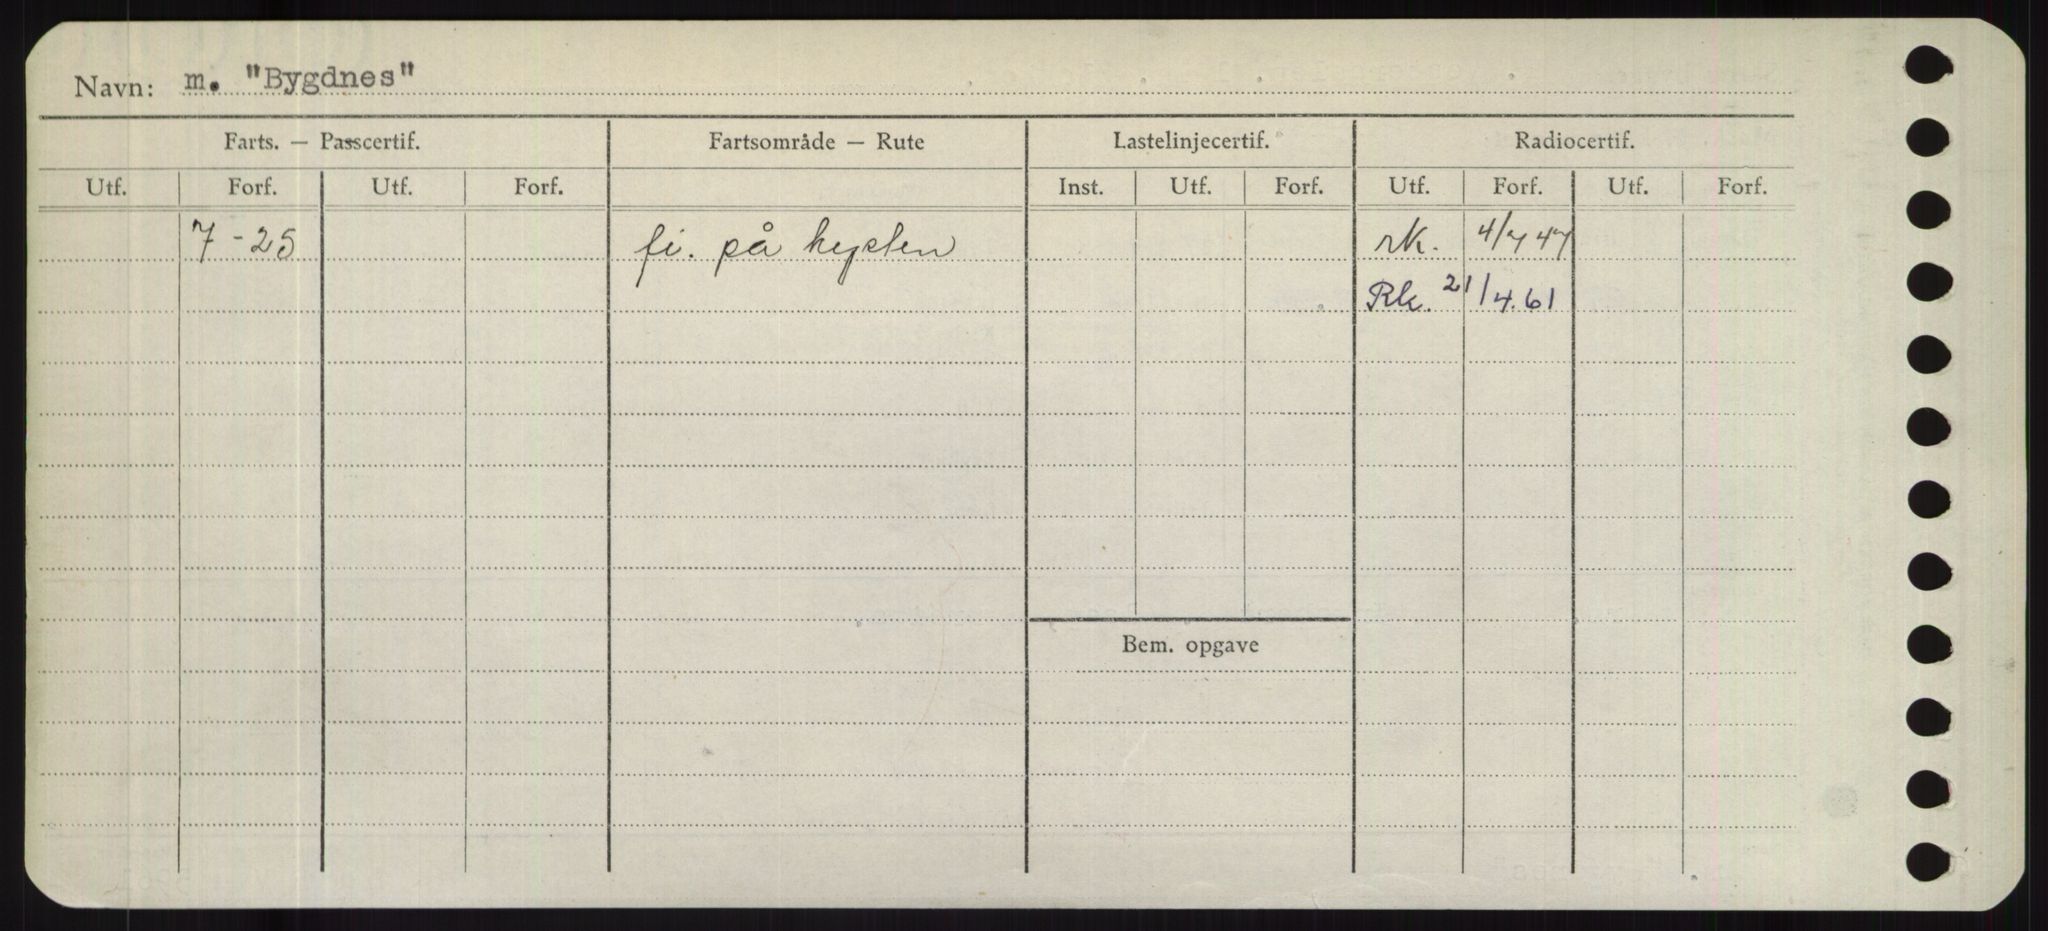 Navn: m. "Bygdnes"
Farts. — Passcertif. Fartsområde — Rute Lastelinjecertif. Radiocertif.
Utf. Forf. Utf. Forf. Inst. Utf. Forf. Utf. Forf. Utf. Forf.
7-25 fi. på kysten rk. 4/7 47
Rk. 21/4.61
Bem. opgave